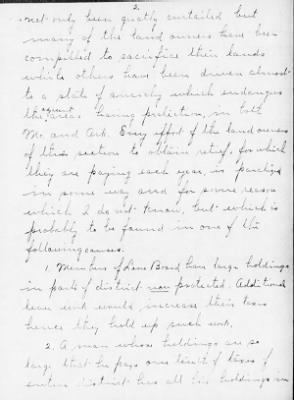 2.
not only been greatly curtailed but
many of the land owners have been
compelled to sacrifice their lands
while others have been driven almost
to a state of anxiety which endangers
the areas having protection, in both
Mo. and Ark. Every effort of the land owners
of this section to obtain relief, for which
they are paying each year, is paralized
in some way and for some reason
which I do not know, but which is
probably to be found in one of the
following causes.
1. Members of Levee Board have large holdings
in part of district now protected. Additional
levee work would increase their taxes
hence they hold up such work.
2. A man whose holdings are so
large that he pays one tenth of taxes of
entire district has all his holdings in